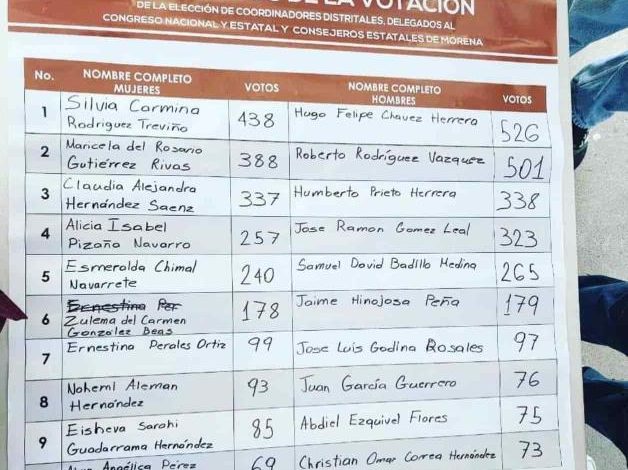 DE LA VOTACIÓN
DE LA ELECCIÓN DE COORDINADORES DISTRITALES, DELEGADOS AL
CONGRESO NACIONAL Y ESTATAL Y CONSEJEROS ESTATALES DE MORENA
No. NOMBRE COMPLETO MUJERES VOTOS NOMBRE COMPLETO HOMBRES VOTOS
1 Silvia Carmina Rodriguez Treviño 438 Hugo Felipe Chavez Herrera 526
2 Maricela del Rosario Gutiérrez Rivas 388 Roberto Rodríguez Vazquez 501
3 Claudia Alejandra Hernández Saenz 337 Humberto Prieto Herrera 338
4 Alicia Isabel Pizaña Navarro 257 Jose Ramon Gomez Leal 323
5 Esmeralda Chimal Navarrete 240 Samuel David Badillo Medina 265
6 Ernestina Per Zulema del Carmen González Beas 178 Jaime Hinojosa Peña 179
7 Ernestina Perales Ortiz 99 Jose Luis Godina Rosales 97
8 Nohemí Aleman Hernández 93 Juan García Guerrero 76
9 Eisheva Sarahi Guadarrama Hernández 85 Abdiel Ezquivel Flores 75
Angélica Pérez 69 Christian Omar Correa Hernández 73